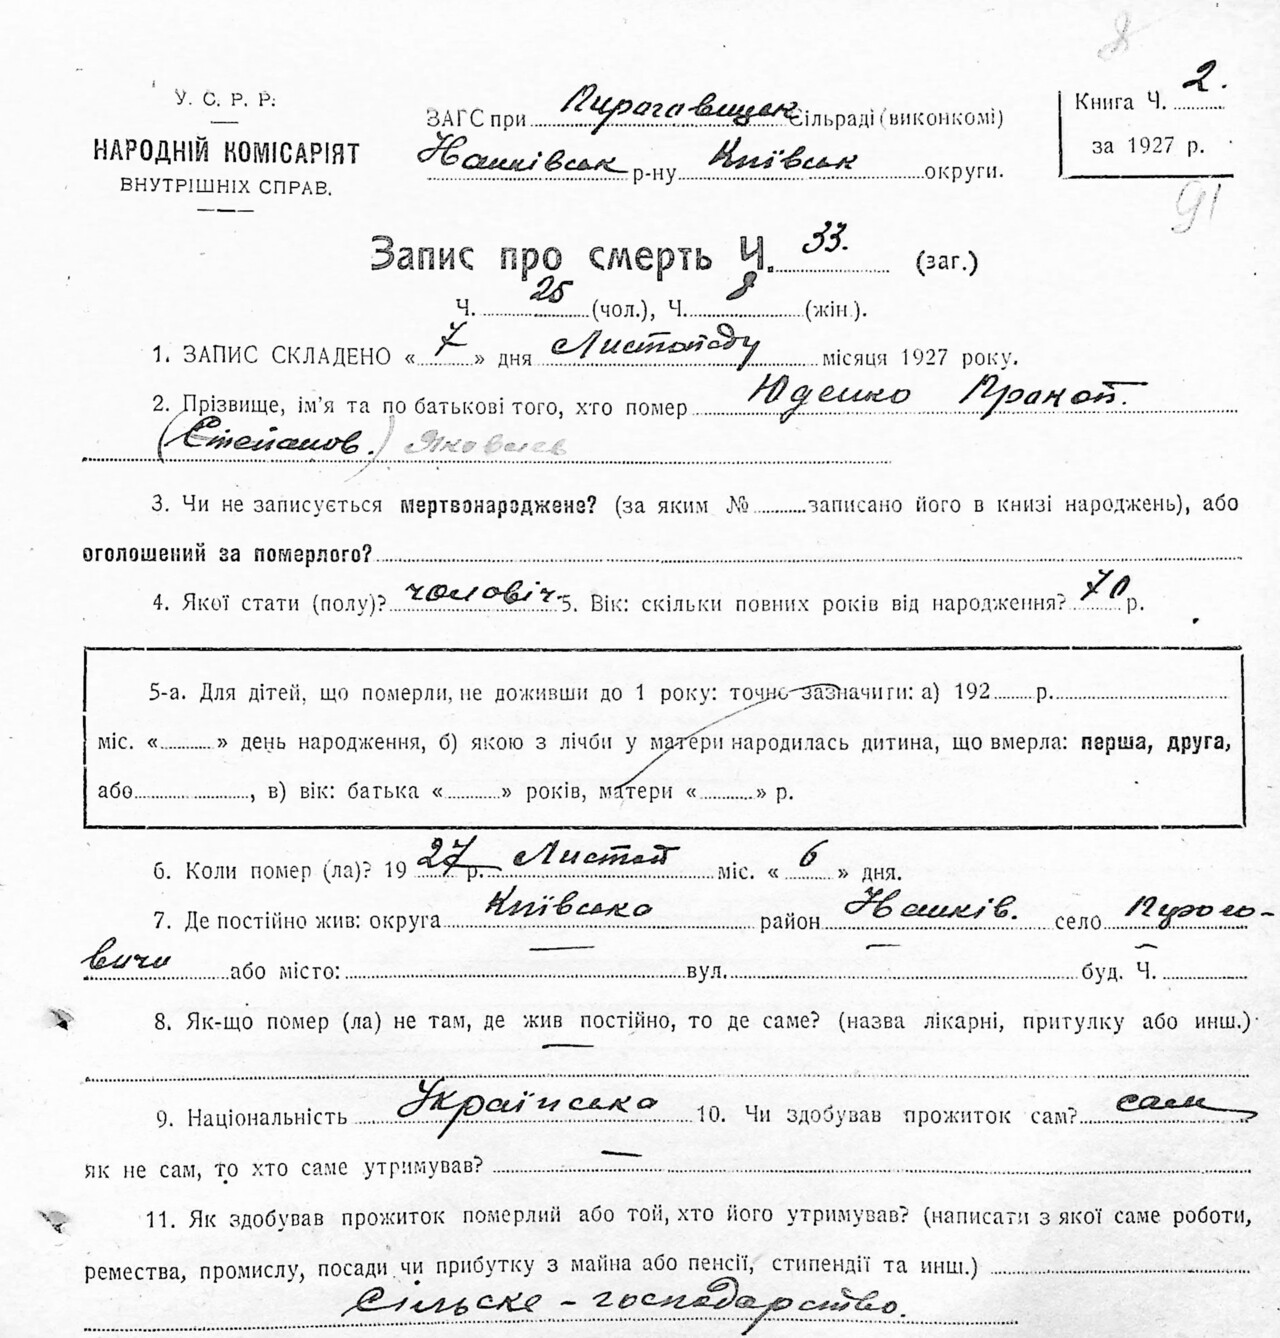 У. С. Р. Р.
НАРОДНІЙ КОМІСАРІЯТ
ВНУТРІШНІХ СПРАВ.
ЗАГС при Пирагавицьк Сільраді (виконкомі)
р-ну Київськ округи.
Книга Ч. 2.
за 1927 р.
91
Запис про смерть Ч. 33. (заг.)
Ч. 25 (чол.), Ч. 8 (жін.).
1. ЗАПИС СКЛАДЕНО « 7 » дня Листопаду місяця 1927 року.
2. Прізвище, ім'я та по батькові того, хто помер Юденко Прокоп.
(Степанов.) Яковлев
3. Чи не записується мертвонароджене? (за яким № записано його в книзі народжень), або
оголошений за померлого?
4. Якої стати (полу)? чоловіч. 5. Вік: скільки повних років від народження? 70 р.
5-а. Для дітей, що померли, не доживши до 1 року: точно зазначити: а) 192 р.
міс. « » день народження, б) якою з лічби у матери народилась дитина, що вмерла: перша, друга,
або , в) вік: батька « » років, матери « » р.
6. Коли помер (ла)? 19 27 р. Листоп міс. « 6 » дня.
7. Де постійно жив: округа Київська район село
вичи або місто: вул. буд. Ч.
8. Як-що помер (ла) не там, де жив постійно, то де саме? (назва лікарні, притулку або инш.)
9. Національність Українська 10. Чи здобував прожиток сам? сам
як не сам, то хто саме утримував?
11. Як здобував прожиток померлий або той, хто його утримував? (написати з якої саме роботи,
ремества, промислу, посади чи прибутку з майна або пенсії, стипендії та инш.)
Сільске - господарство.